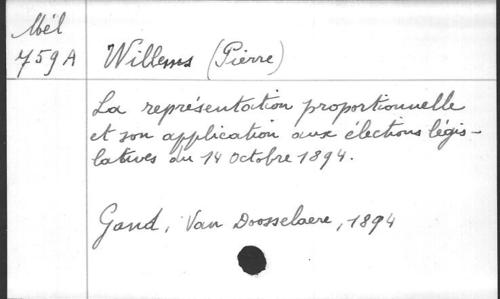 Mél
759A
Willems (Pierre)
La représentation proportionnelle
et son application aux élections légis-
latives du 14 octobre 1894.
Gand, Van Doosselaere, 1894